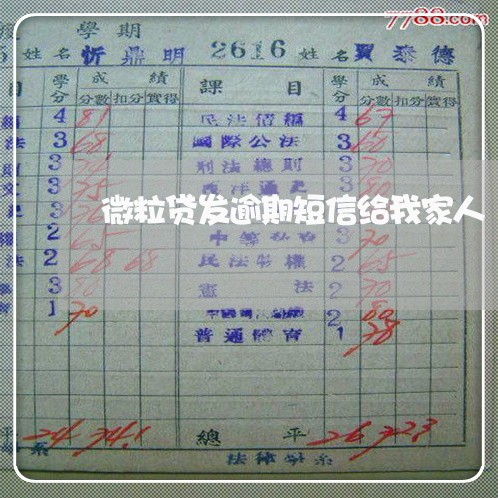 7788.com
學期
姓名 忻鼎明 2616 姓名 賈泰德
目 學分 成績 課目 學分 成績
分數 扣分 實得 分數 扣分 實得
4 81 民法債編 4 67
法 3 68 國際公法 3 60
3 刑法總則 3 70
3 75 西洋通史 3 80
微粒贷发逾期短信给我家人
2 65 3 70
法 2 68 68 民法物權 2 65
3 80 憲法 2 70
1 70 2 80
普通體育 1 78
平 24 74.1 總平 26 72.3
法律學系